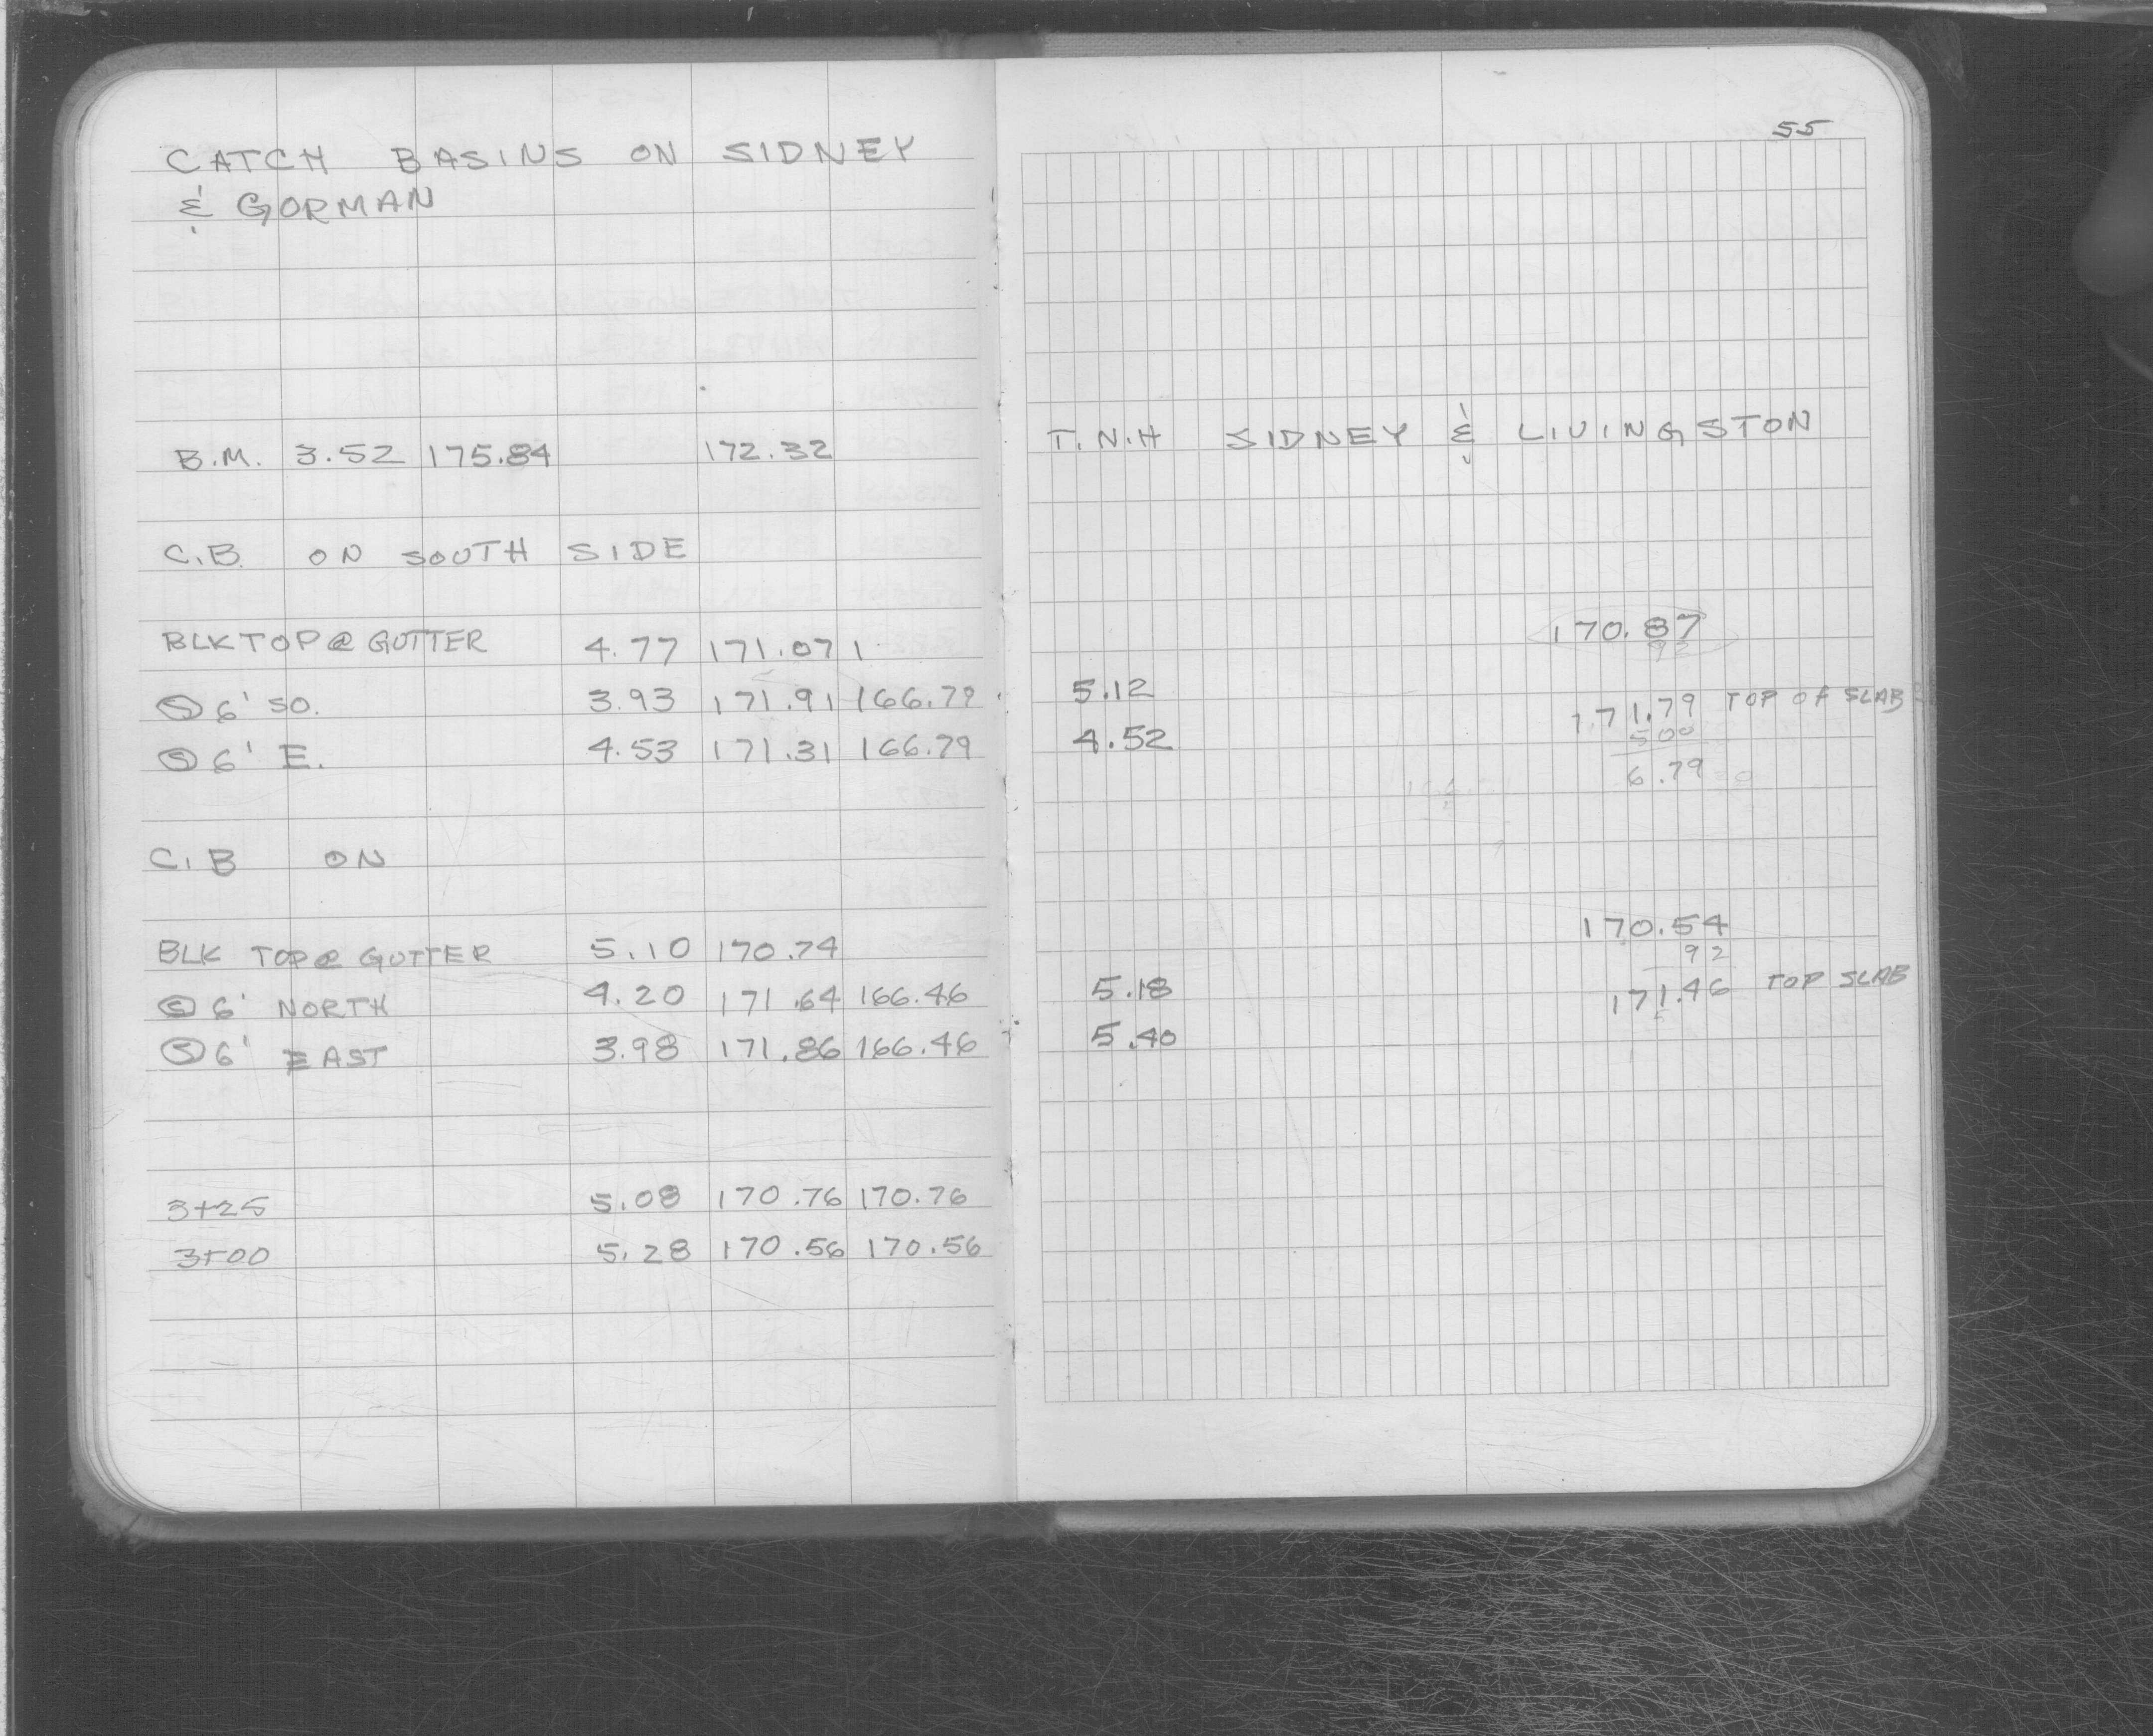 CATCH BASINS ON SIDNEY
& GORMAN
B.M. 3.52 175.84 172.32
C.B. ON SOUTH SIDE
BLKTOP @ GUTTER 4.77 171.07 1
Ⓢ 6' SO. 3.93 171.91 166.79
Ⓢ 6' E. 4.53 171.31 166.79
C.B ON
BLK TOP @ GUTTER 5.10 170.74
Ⓢ 6' NORTH 4.20 171.64 166.46
Ⓢ 6' EAST 3.98 171.86 166.46
3+25 5.08 170.76 170.76
3+00 5.28 170.56 170.56
55
T.N.H SIDNEY & LIVINGSTON
170.87
92
5.12 171.79 TOP OF SLAB
4.52 500
6.79
170.54
92
5.18 171.46 TOP SLAB
5.40